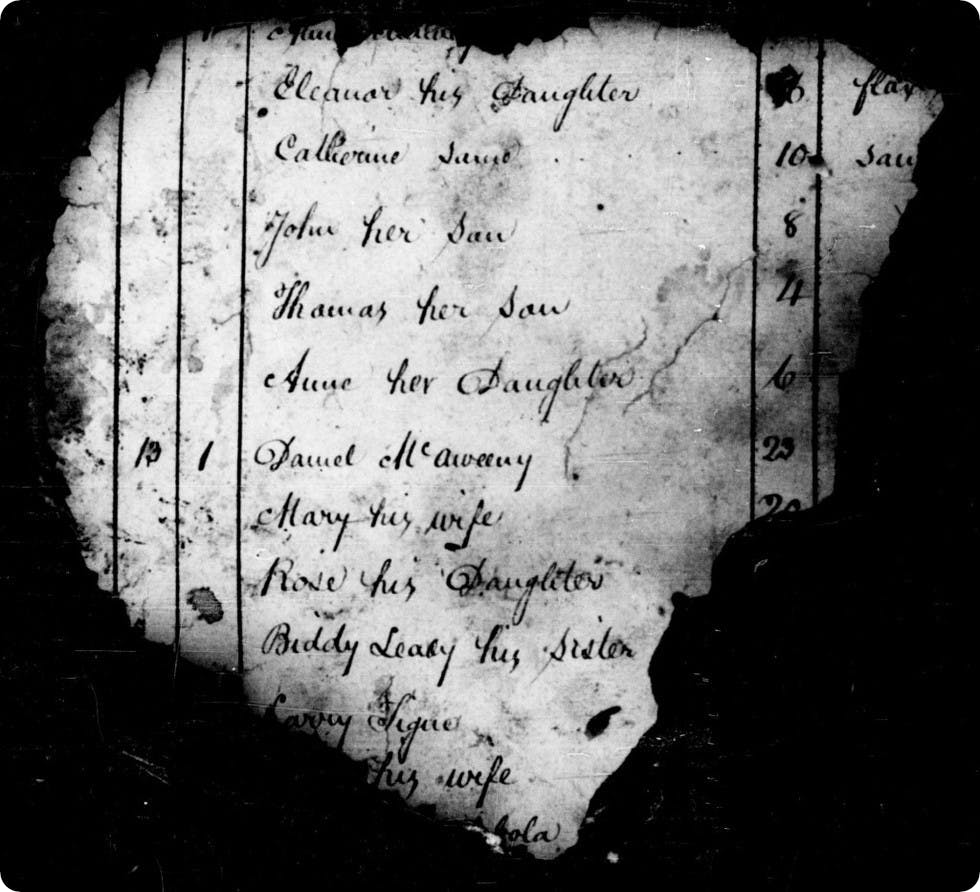 Eleanor his Daughter 16 flax
Catherine same 10 sam
John her son 8
Thomas her son 4
Anne her Daughter 6
13 1 Daniel McAweeny 23
Mary his wife 20
Rose his Daughter
Biddy Leavy his sister
Larry Tigue
his wife